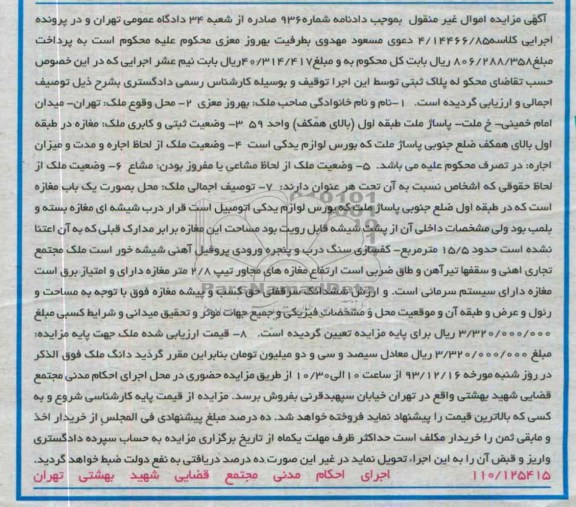 آگهی مزایده اموال غیر منقول بموجب دادنامه شماره۹۳۶ صادره از شعبه ۳۴ دادگاه عمومی تهران و در پرونده
اجرایی کلاسه۴/۱۴۴۶۶/۸۵ دعوی مسعود مهدوی بطرفیت بهروز معزی محکوم علیه محکوم است به پرداخت
مبلغ۸۰۶/۲۸۸/۳۵۸ ریال بابت کل محکوم به و مبلغ۴۰/۳۱۴/۴۱۷ریال بابت نیم عشر اجرایی که در این خصوص
حسب تقاضای محکو له پلاک ثبتی توسط این اجرا توقیف و بوسیله کارشناس رسمی دادگستری بشرح ذیل توصیف
اجمالی و ارزیابی گردیده است. ۱-نام و نام خانوادگی صاحب ملک: بهروز معزی ۲- محل وقوع ملک: تهران- میدان
امام خمینی- خ ملت- پاساژ ملت طبقه اول (بالای همکف) واحد ۵۹ ۳- وضعیت ثبتی و کابری ملک: مغازه در طبقه
اول بالای همکف ضلع جنوبی پاساژ ملت که بورس لوازم یدکی است ۴- وضعیت ملک از لحاظ اجاره و مدت و میزان
اجاره: در تصرف محکوم علیه می باشد. ۵- وضعیت ملک از لحاظ مشاعی یا مفروز بودن: مشاع ۶- وضعیت ملک از
لحاظ حقوقی که اشخاص نسبت به آن تحت هر عنوان دارند: ۷- توصیف اجمالی ملک: محل بصورت یک باب مغازه
است که در طبقه اول ضلع جنوبی پاساژ ملت که بورس لوازم یدکی اتومبیل است قرار درب شیشه ای مغازه بسته و
پلمب بود ولی مشخصات داخلی آن از پشت شیشه قابل رویت بود مساحت این مغازه برابر مدارک قبلی که به آن اعتنا
نشده است حدود ۱۵/۵ مترمربع- کفسازی سنگ درب و پنجره ورودی پروفیل آهنی شیشه خور است ملک مجتمع
تجاری اهنی و سقفها تیرآهن و طاق ضربی است ارتفاع مغازه های مجاور تیپ ۲/۸ متر مغازه دارای و امتیاز برق است
مغازه دارای سیستم سرمانی است. و ارزش ششدانگ سرقفلی حق کسب و پیشه مغازه فوق با توجه به مساحت و
رنول و عرض و طبقه آن و موقعیت محل و مشخصات فیزیکی و جمیع جهات موثر و تحقیق میدانی و شرایط کسبی مبلغ
۳/۳۲۰/۰۰۰/۰۰۰ ریال برای پایه مزایده تعیین گردیده است. ۸- قیمت ارزیابی شده ملک جهت پایه مزایده:
مبلغ ۳/۳۲۰/۰۰۰/۰۰۰ ریال معادل سیصد و سی و دو میلیون تومان بنابراین مقرر گردید دانگ ملک فوق الذکر
در روز شنبه مورخه ۹۳/۱۲/۱۶ از ساعت ۱۰الی۱۰/۳۰ از طریق مزایده حضوری در محل اجرای احکام مدنی مجتمع
قضایی شهید بهشتی واقع در تهران خیابان سپهبدقرنی بفروش برسد. مزایده از قیمت پایه کارشناسی شروع و به
کسی که بالاترین قیمت را پیشنهاد نماید فروخته خواهد شد. ده درصد مبلغ پیشنهادی فی المجلس از خریدار اخذ
و مابقی ثمن را خریدار مکلف است حداکثر ظرف مهلت یکماه از تاریخ برگزاری مزایده به حساب سپرده دادگستری
واریز و قبض آن را به این اجراء تحویل نماید در غیر این صورت ده درصد دریافتی به نفع دولت ضبط خواهد گردید.
۱۱۰/۱۲۵۴۱۵ اجرای احکام مدنی مجتمع قضایی شهید بهشتی تهران